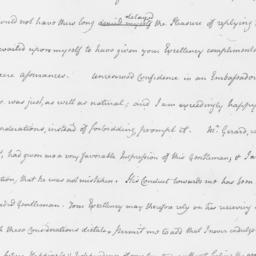 ould not have thus long denied myself delayed the Pleasure of replying
vailed upon myself to have given your Excellency compliments
cere assurances. Unreserved Confidence in an Embassador
was just, as well as natural; and I am exceedingly happy
nderations, instead of forbidding prompt it. Mr. Gerard,
, had given me a very favorable Impression of this Gentleman, & I a
tion, that he was not mistaken. His Conduct towards me has been
ndid Gentleman. Your Excellency may therefore rely on his receiving
ch these Considerations dictate. Permit me to add that I never indulge